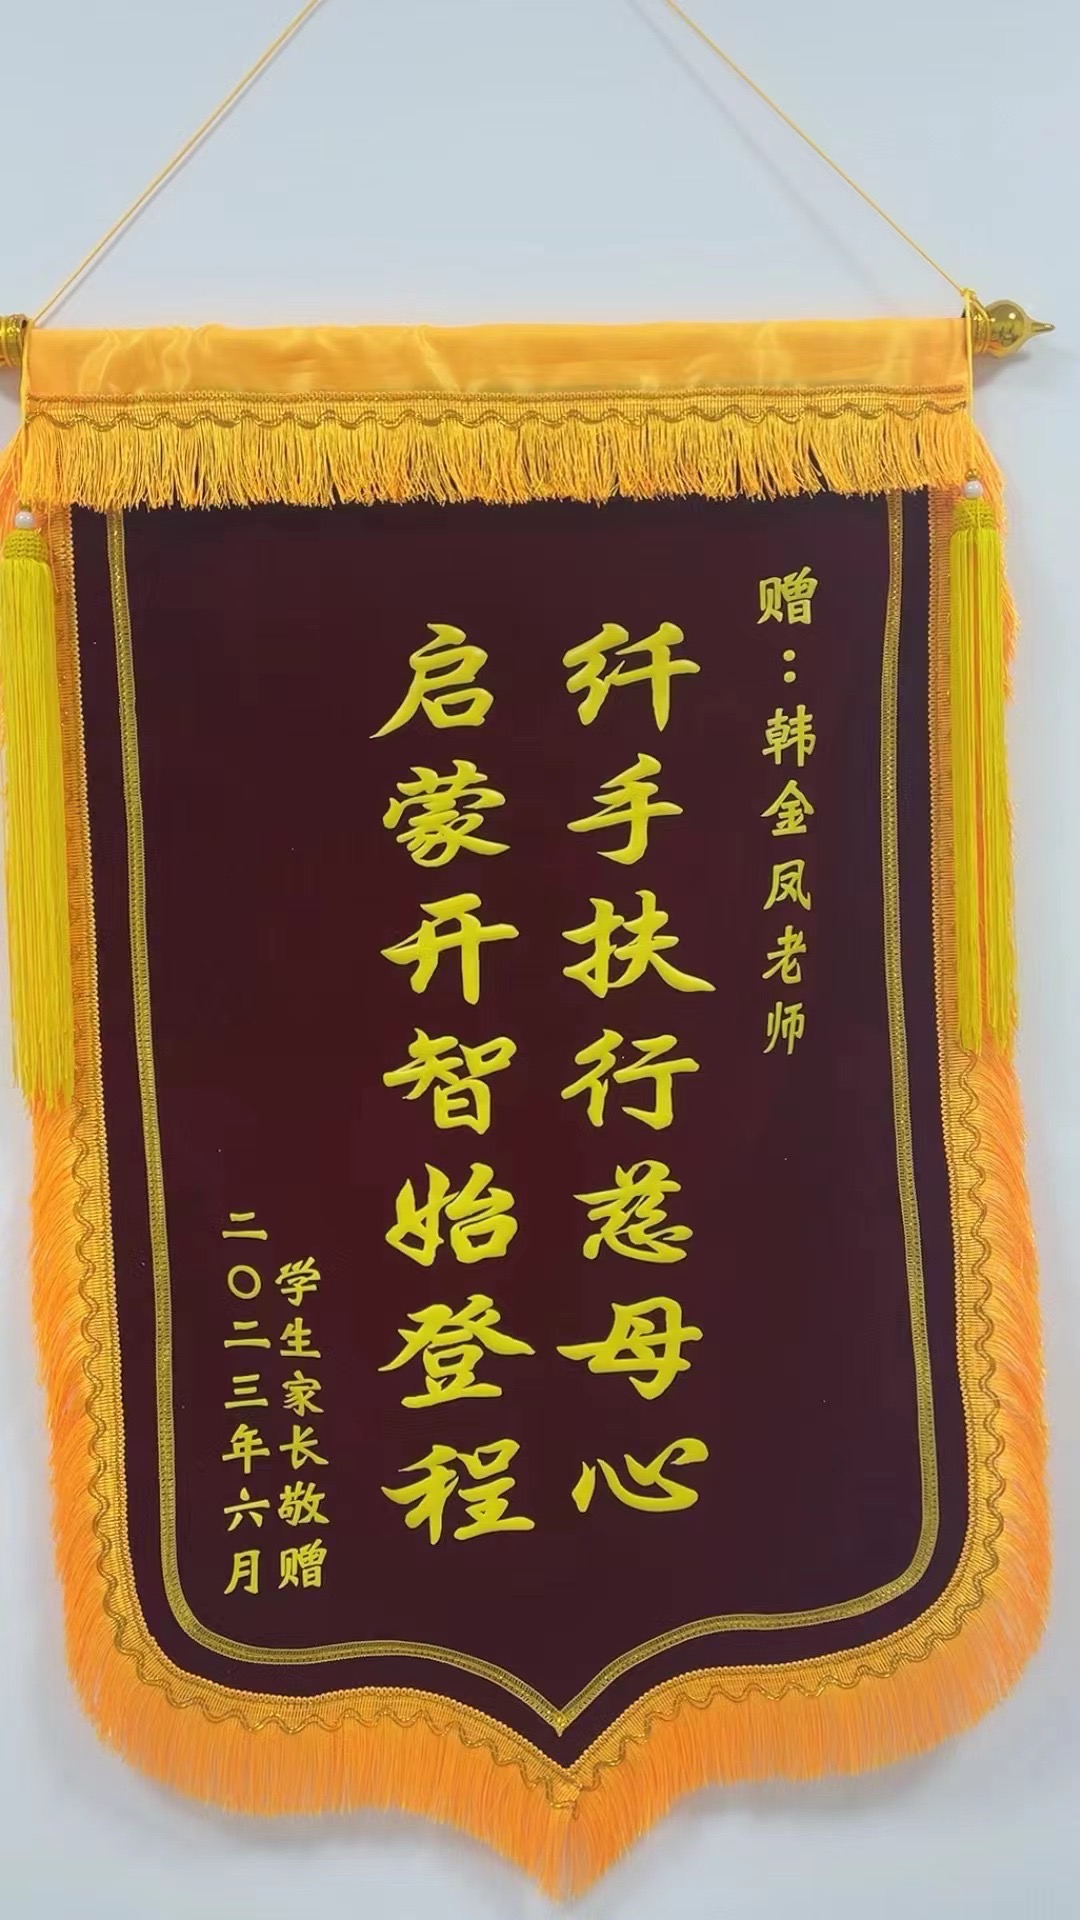 赠：韩金凤老师
纤手扶行慈母心
启蒙开智始登程
学生家长敬赠
二〇二三年六月